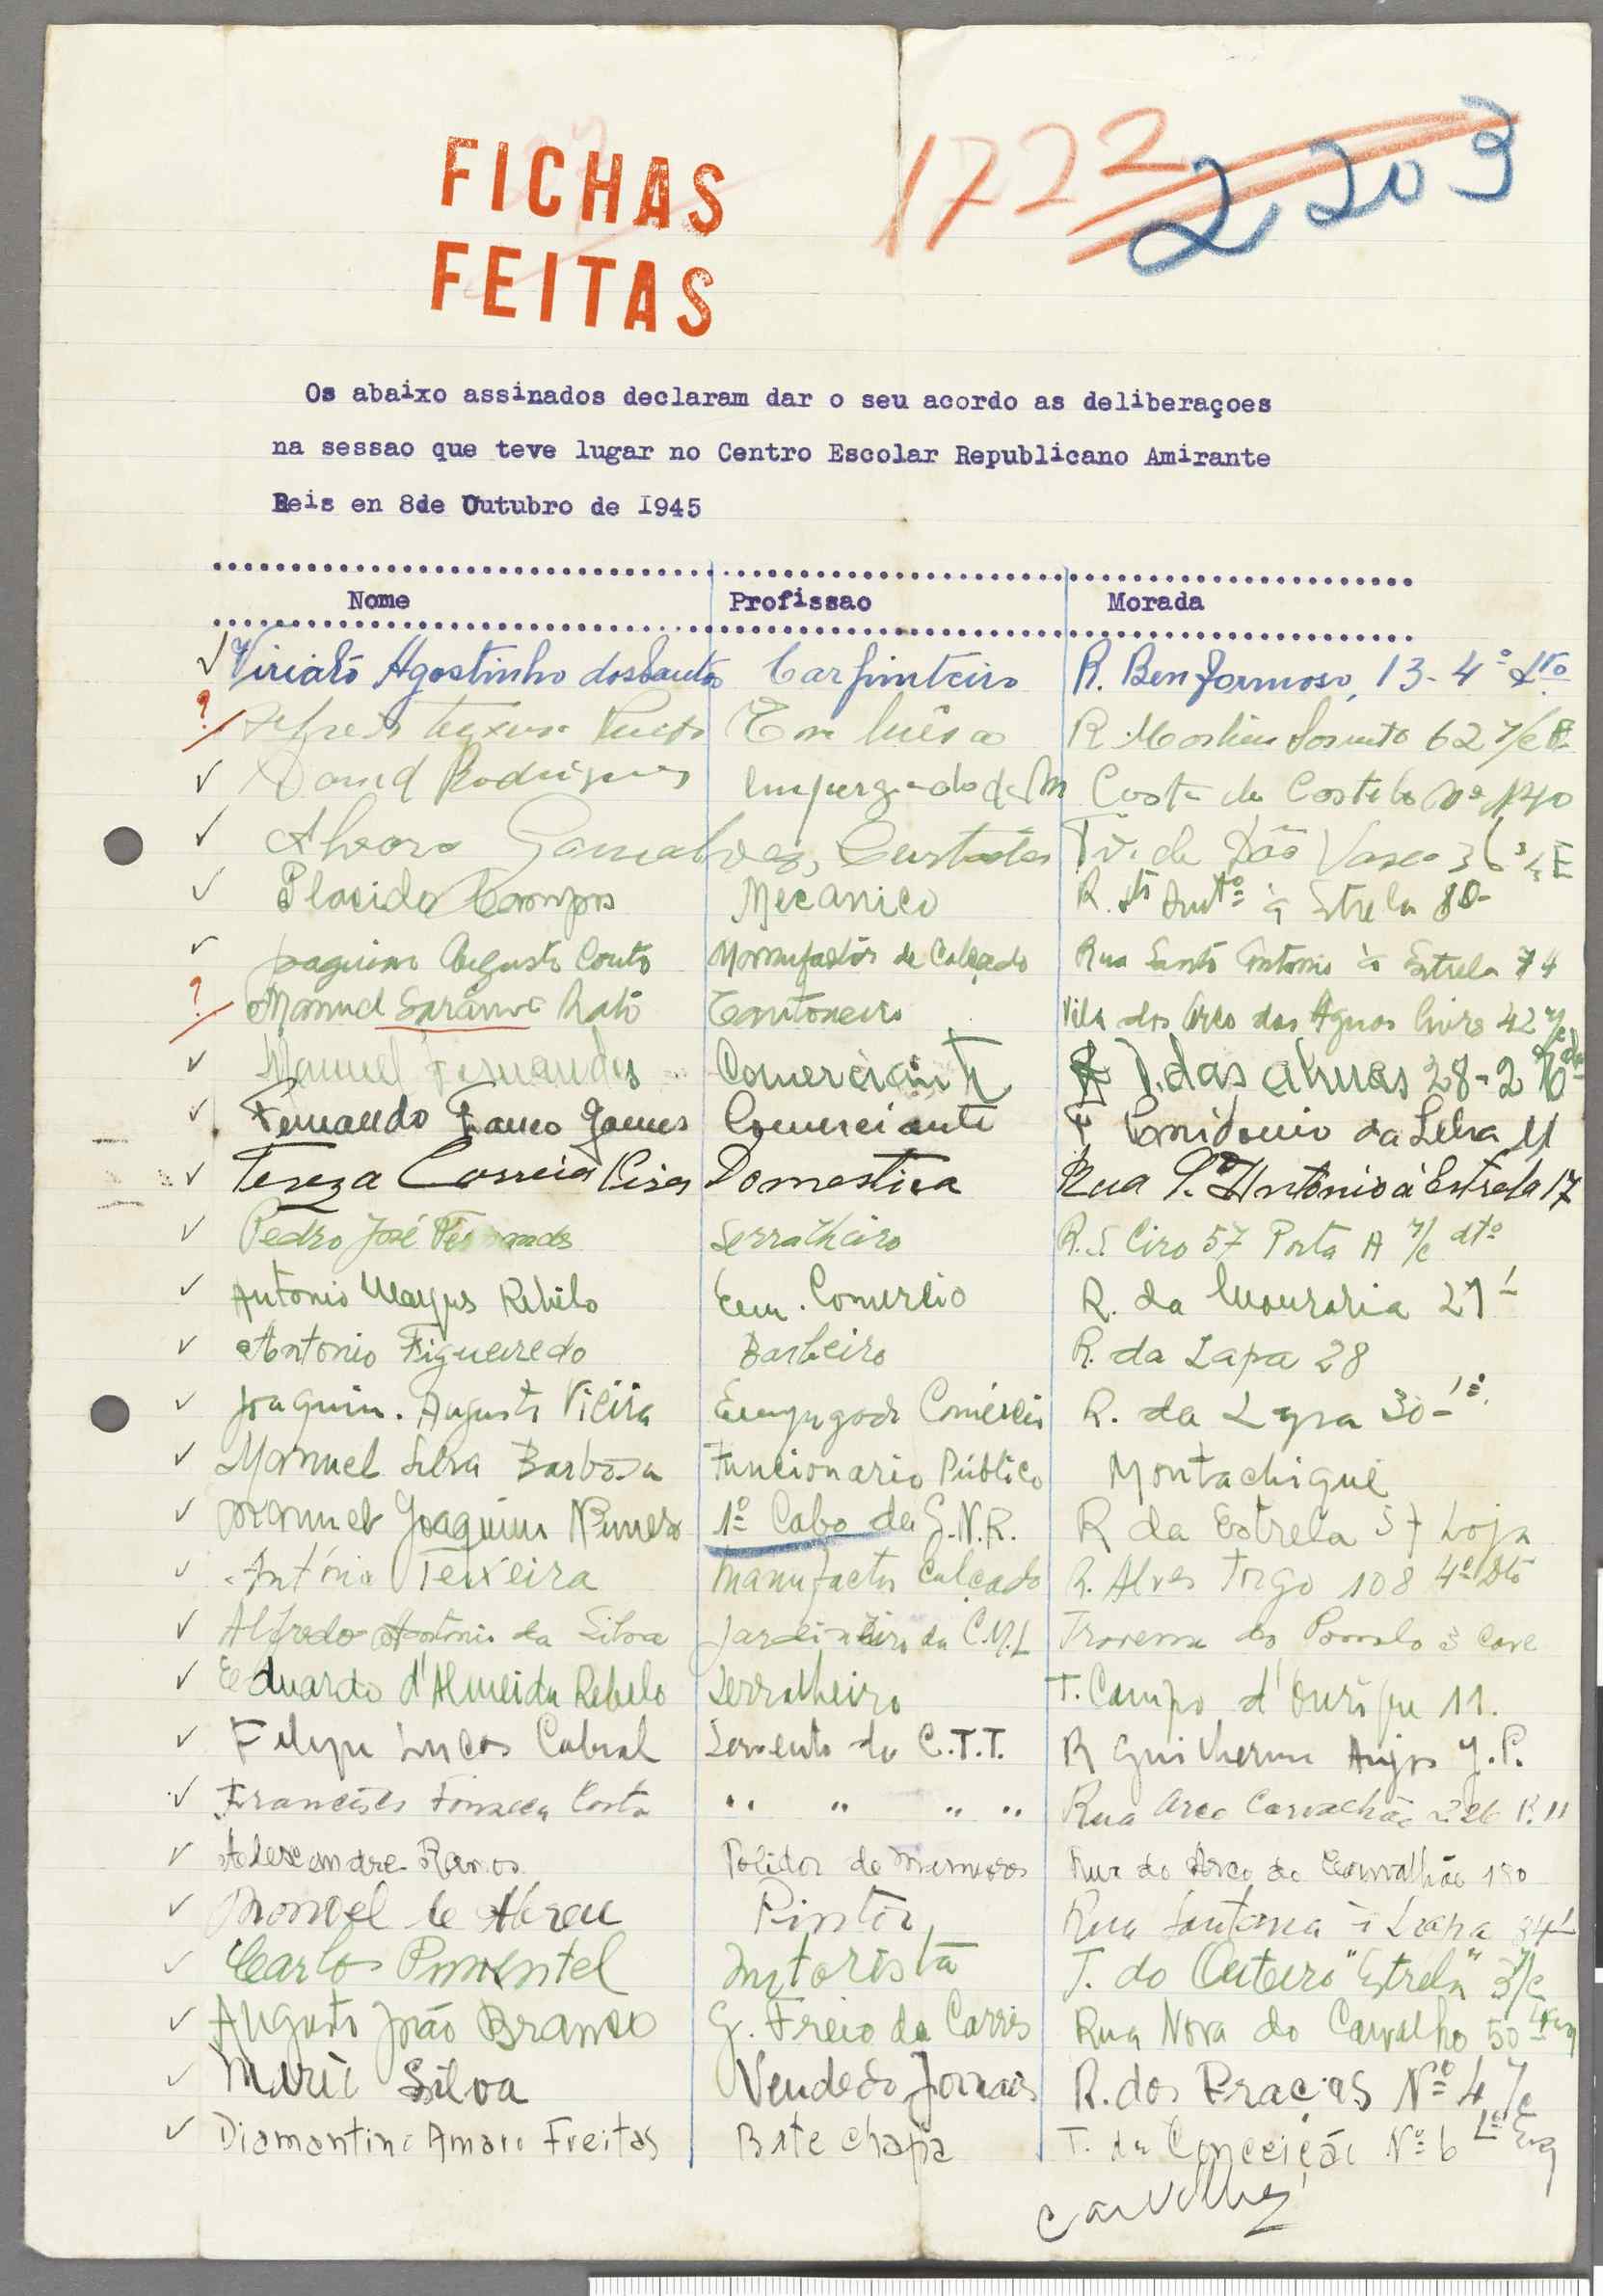 FICHAS
FEITAS
1722 2,203
Os abaixo assinados declaram dar o seu acordo as deliberaçoes
na sessao que teve lugar no Centro Escolar Republicano Amirante
Reis en 8de Outubro de I945
Nome Profissao Morada
Viriato Agostinho dos Santos Carpinteiro R. Benformoso, 13-4º Dto
? R. Martim 62 r/c
David Rodrigues Empregado Costa do Castelo nº 140
Alvaro Gonçalves, Tv. de São Vasco 36
Placido Campos Mecanico R. Stº Antº à Estrela 80
Joaquim Augusto Couto Manufactor de Calçado Rua Santo Antonio à Estrela 74
? Manuel Rato Cantoneiro Vila do Arco das Aguas Livres 42 r/c
Manuel Fernandes Comerciante T. das almas 28-2º
Fernando Gomes Comerciante T da Selva 11
Tereza Correia Pires Domestica Rua S. Antonio à Estrela 17
Pedro José Fernandes Serralheiro R. S. Ciro 57 Porta A r/c dtº
Antonio Rebelo Em. Comercio R. da Mouraria 27
Antonio Figueiredo Barbeiro R. da Lapa 28
Joaquim. Augusto Vieira Empregado Comércio R. da Lapa 30-1º
Manuel Silva Barbosa Funcionario Público Montachique
Manuel Joaquim Nunes 1º Cabo da G.N.R. R da Estrela 57 Loja
António Teixeira Manufactor Calçado R. Alves Torgo 108 4º Dtº
Alfredo Antonio da Silva Jardineiro da C.M.L Travessa do Pombo 3 Cave
Eduardo d'Almeida Rebelo Serralheiro T. Campo d'Ourique 11.
Filipe Lucas Cabral Servente do C.T.T. R Guilherme Anjos J.P.
Francisco Fonseca Costa " " " " Rua Arco Carvalhão 226 P. 11
Alexandre Ramos Polidor de marmores Rua do Arco do Carvalhão 180
Manuel de Abreu Pintor Rua à Lapa
Carlos Pimentel Motorista T. do Outeiro "Estrela" 3 r/c
Augusto João Branco G. Freio da Carris Rua Nova do Carvalho 50
Mario Silva Vendedo Jornais R. dos Nº 4 r/c
Diamantino Amaro Freitas Bate chapa T. da Conceição Nº 6 Lº Esq